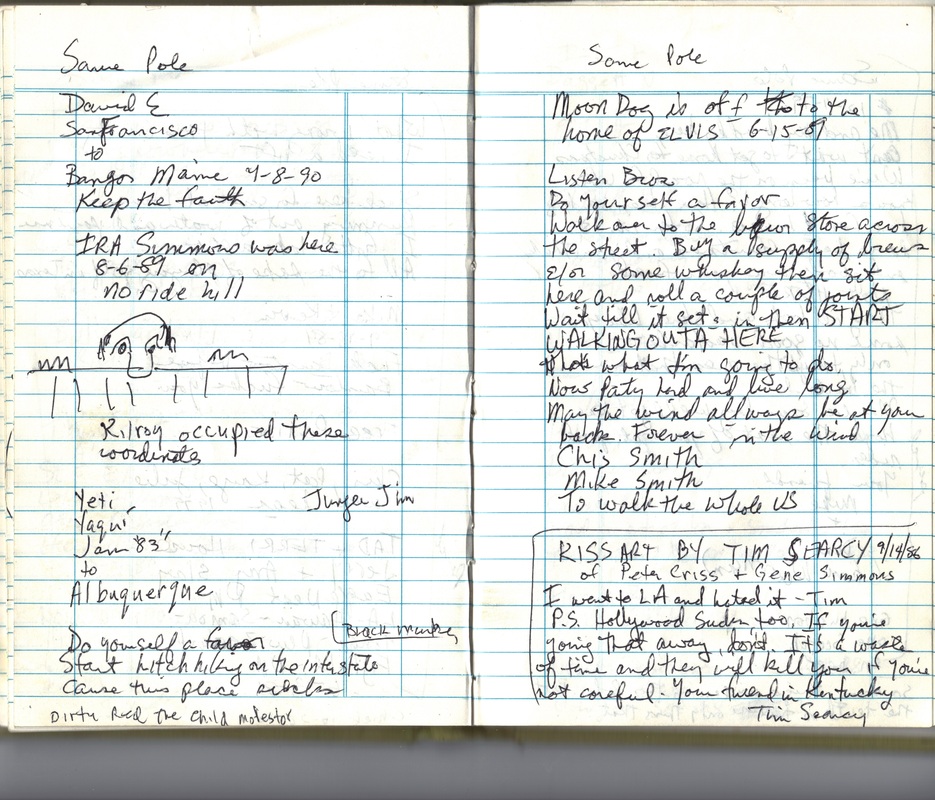 Same Pole
David E
San Francisco
to
Bangor Maine 4-8-90
Keep the faith
IRA Simmons was here
8-6-89 on
no ride hill
Kilroy occupied these
coordinates
Yeti
Yaqui
Jan "83"
to
Albuquerque
Jim
Black Marker
Do yourself a favor
Start hitch hiking on the interstate
Cause this place sucks
Dirty Red the child molestor
Same Pole
Moon Dog is off to the
home of ELVIS 6-15-89
Listen Bros
Do yourself a favor
Walk over to the liquor Store across
the street. Buy a supply of brews
&/or some whiskey then sit
here and roll a couple of joints
Wait till it sets in then START
WALKING OUTA HERE
that's what I'm going to do.
Now Paty hard and live long
May the wind allways be at your
back. Forever in the Wind
Chis Smith
Mike Smith
To walk the Whole US
KISS ART BY TIM SEARCY 9/14/86
of Peter Criss + Gene Simmons
I went to LA and hated it - Tim
P.S. Hollywood Sucks too, If you're
going that away, don't. It's a waste
of time and they will kill you if you're
not careful. Your friend in Kentucky
Tim Searcy